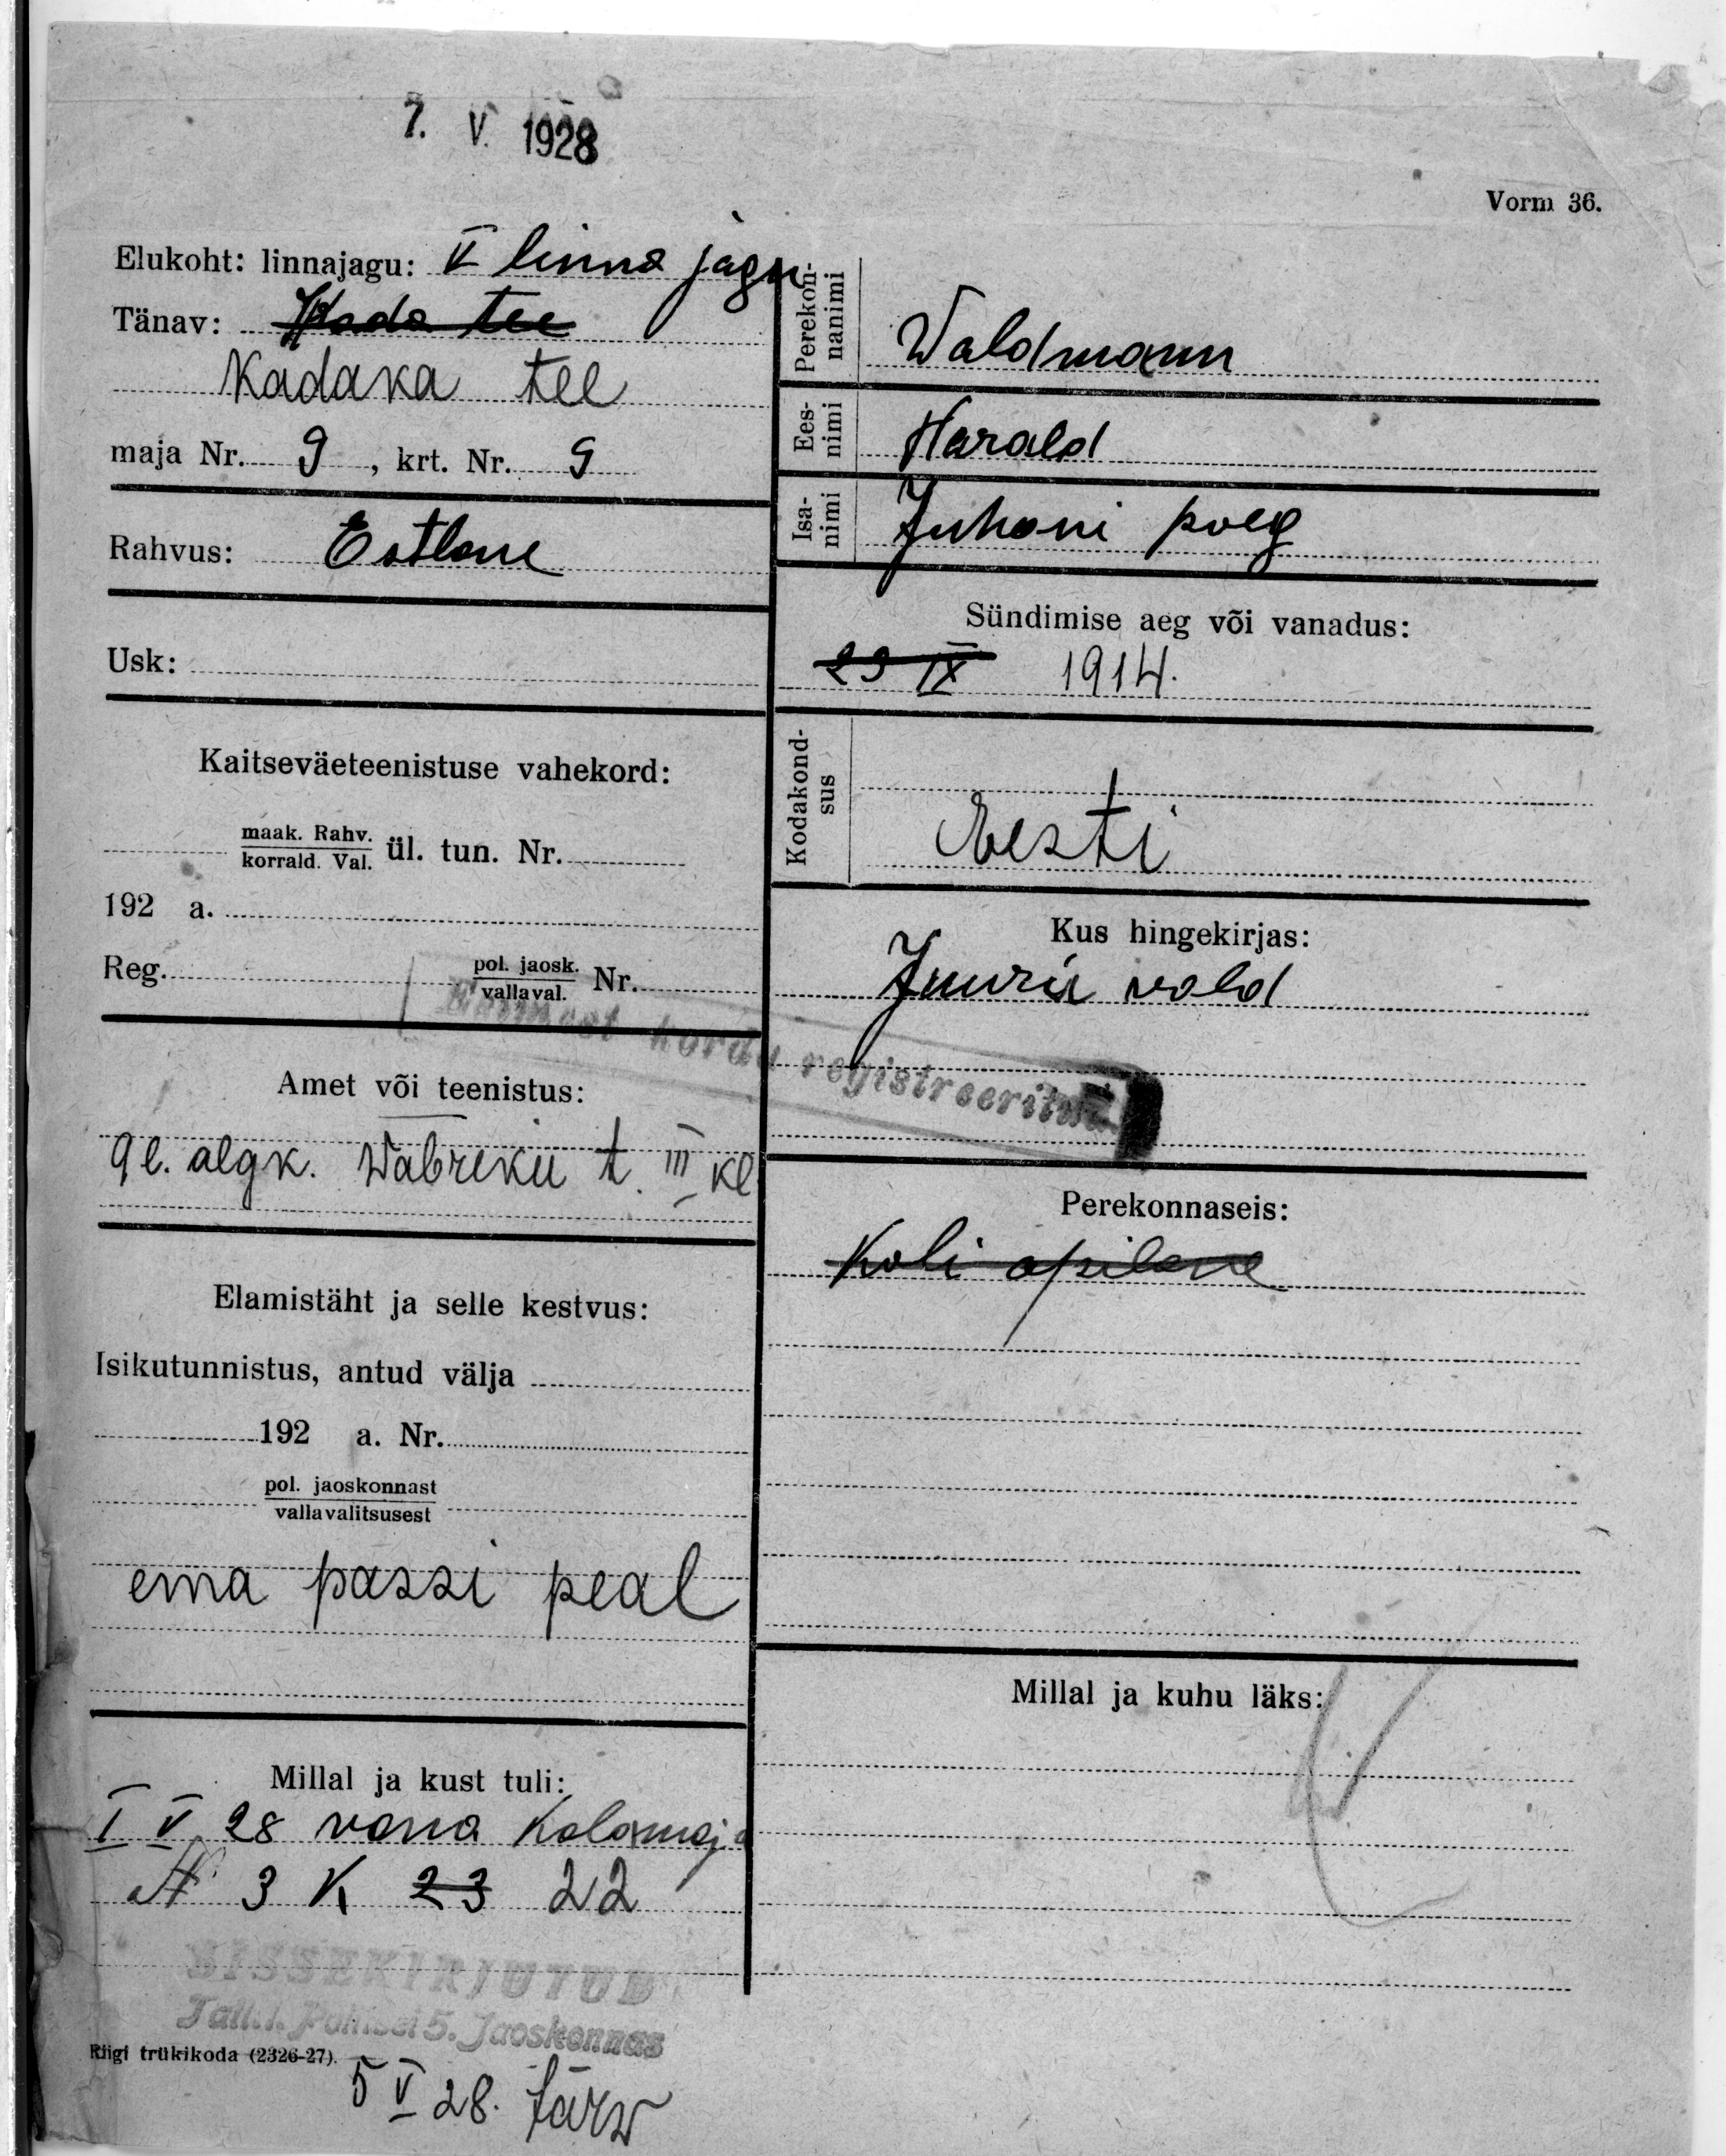 7. V. 1928
Vorm 36.
Elukoht: linnajagu: V linna jagu
Tänav: Kada tee
Kadaka tee
maja Nr. 9, krt. Nr. 9
Rahvus: Estlane
Usk:
Kaitseväeteenistuse vahekord:
maak. Rahv.
korrald. Val. ül. tun. Nr.
192 a.
Reg. pol. jaosk.
vallaval. Nr.
Amet või teenistus:
9 l. algk. Wabriku t. III kl
Elamistäht ja selle kestvus:
Isikutunnistus, antud välja
192 a. Nr.
pol. jaoskonnast
vallavalitsusest
ema passi peal
Millal ja kust tuli:
I V 28 vana Kalamaja
N 3 K 23 22
SISSEKIRJUTUD
Tall.l. Politsei 5. Jaoskonnas
Riigi trükikoda (2326-27).
5 V 28. Järw
Perekon-
nanimi
Waldmann
Ees-
nimi
Harald
Isa-
nimi
Juhani poeg
Sündimise aeg või vanadus:
29 IX 1914.
Kodakond-
sus
Eesti
Kus hingekirjas:
Juuru vald
Esimest korda registreeritud
Perekonnaseis:
Koli opilane
Millal ja kuhu läks: